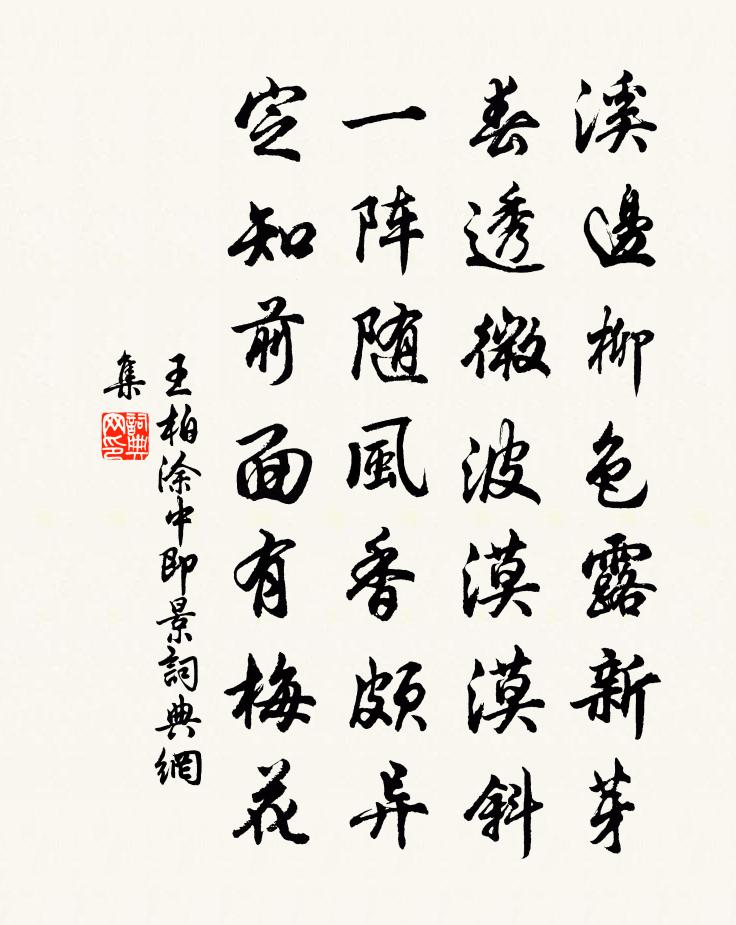 溪邊柳色露新芽
春透微波漠漠斜
一阵随風香颇异
定知前面有梅花
王柏涂中即景詞典網
集
詞典
网印